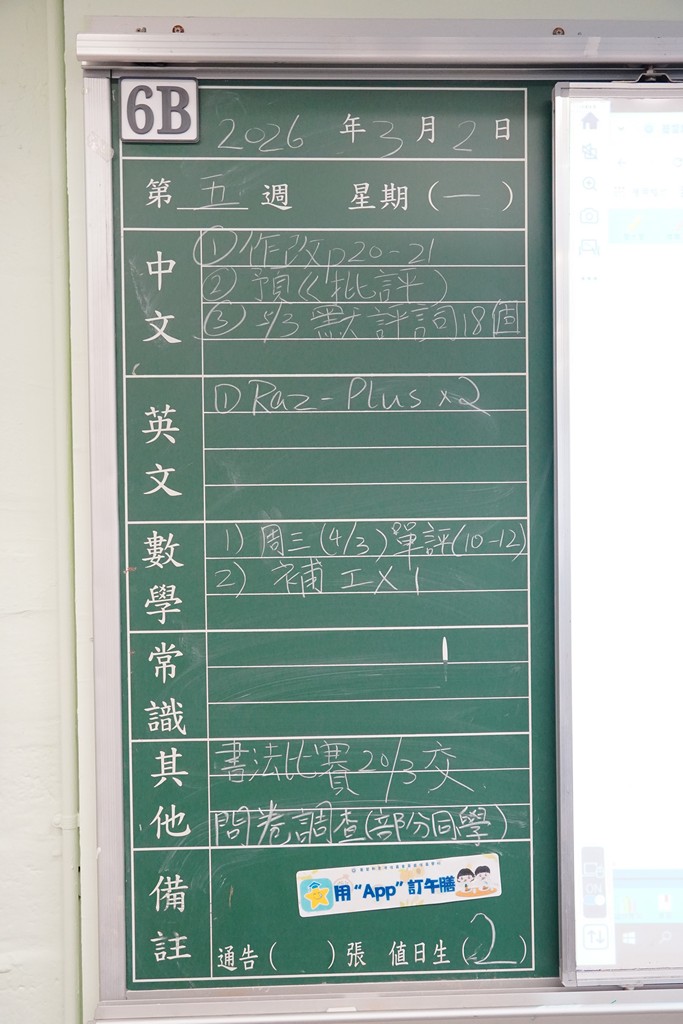 6B
2026 年 3 月 2 日
第 五 週 星期 (一)
中文
① 作改p20-21
② 預(批評)
③ 5/3 默評詞18個
英文
① Raz-Plus x2
數學
1) 周三(4/3)單評(10-12)
2) 補工X1
常識
其他
書法比賽20/3交
問卷調查(部分同學)
備註
用“App”訂午膳
通告( )張 值日生(2)